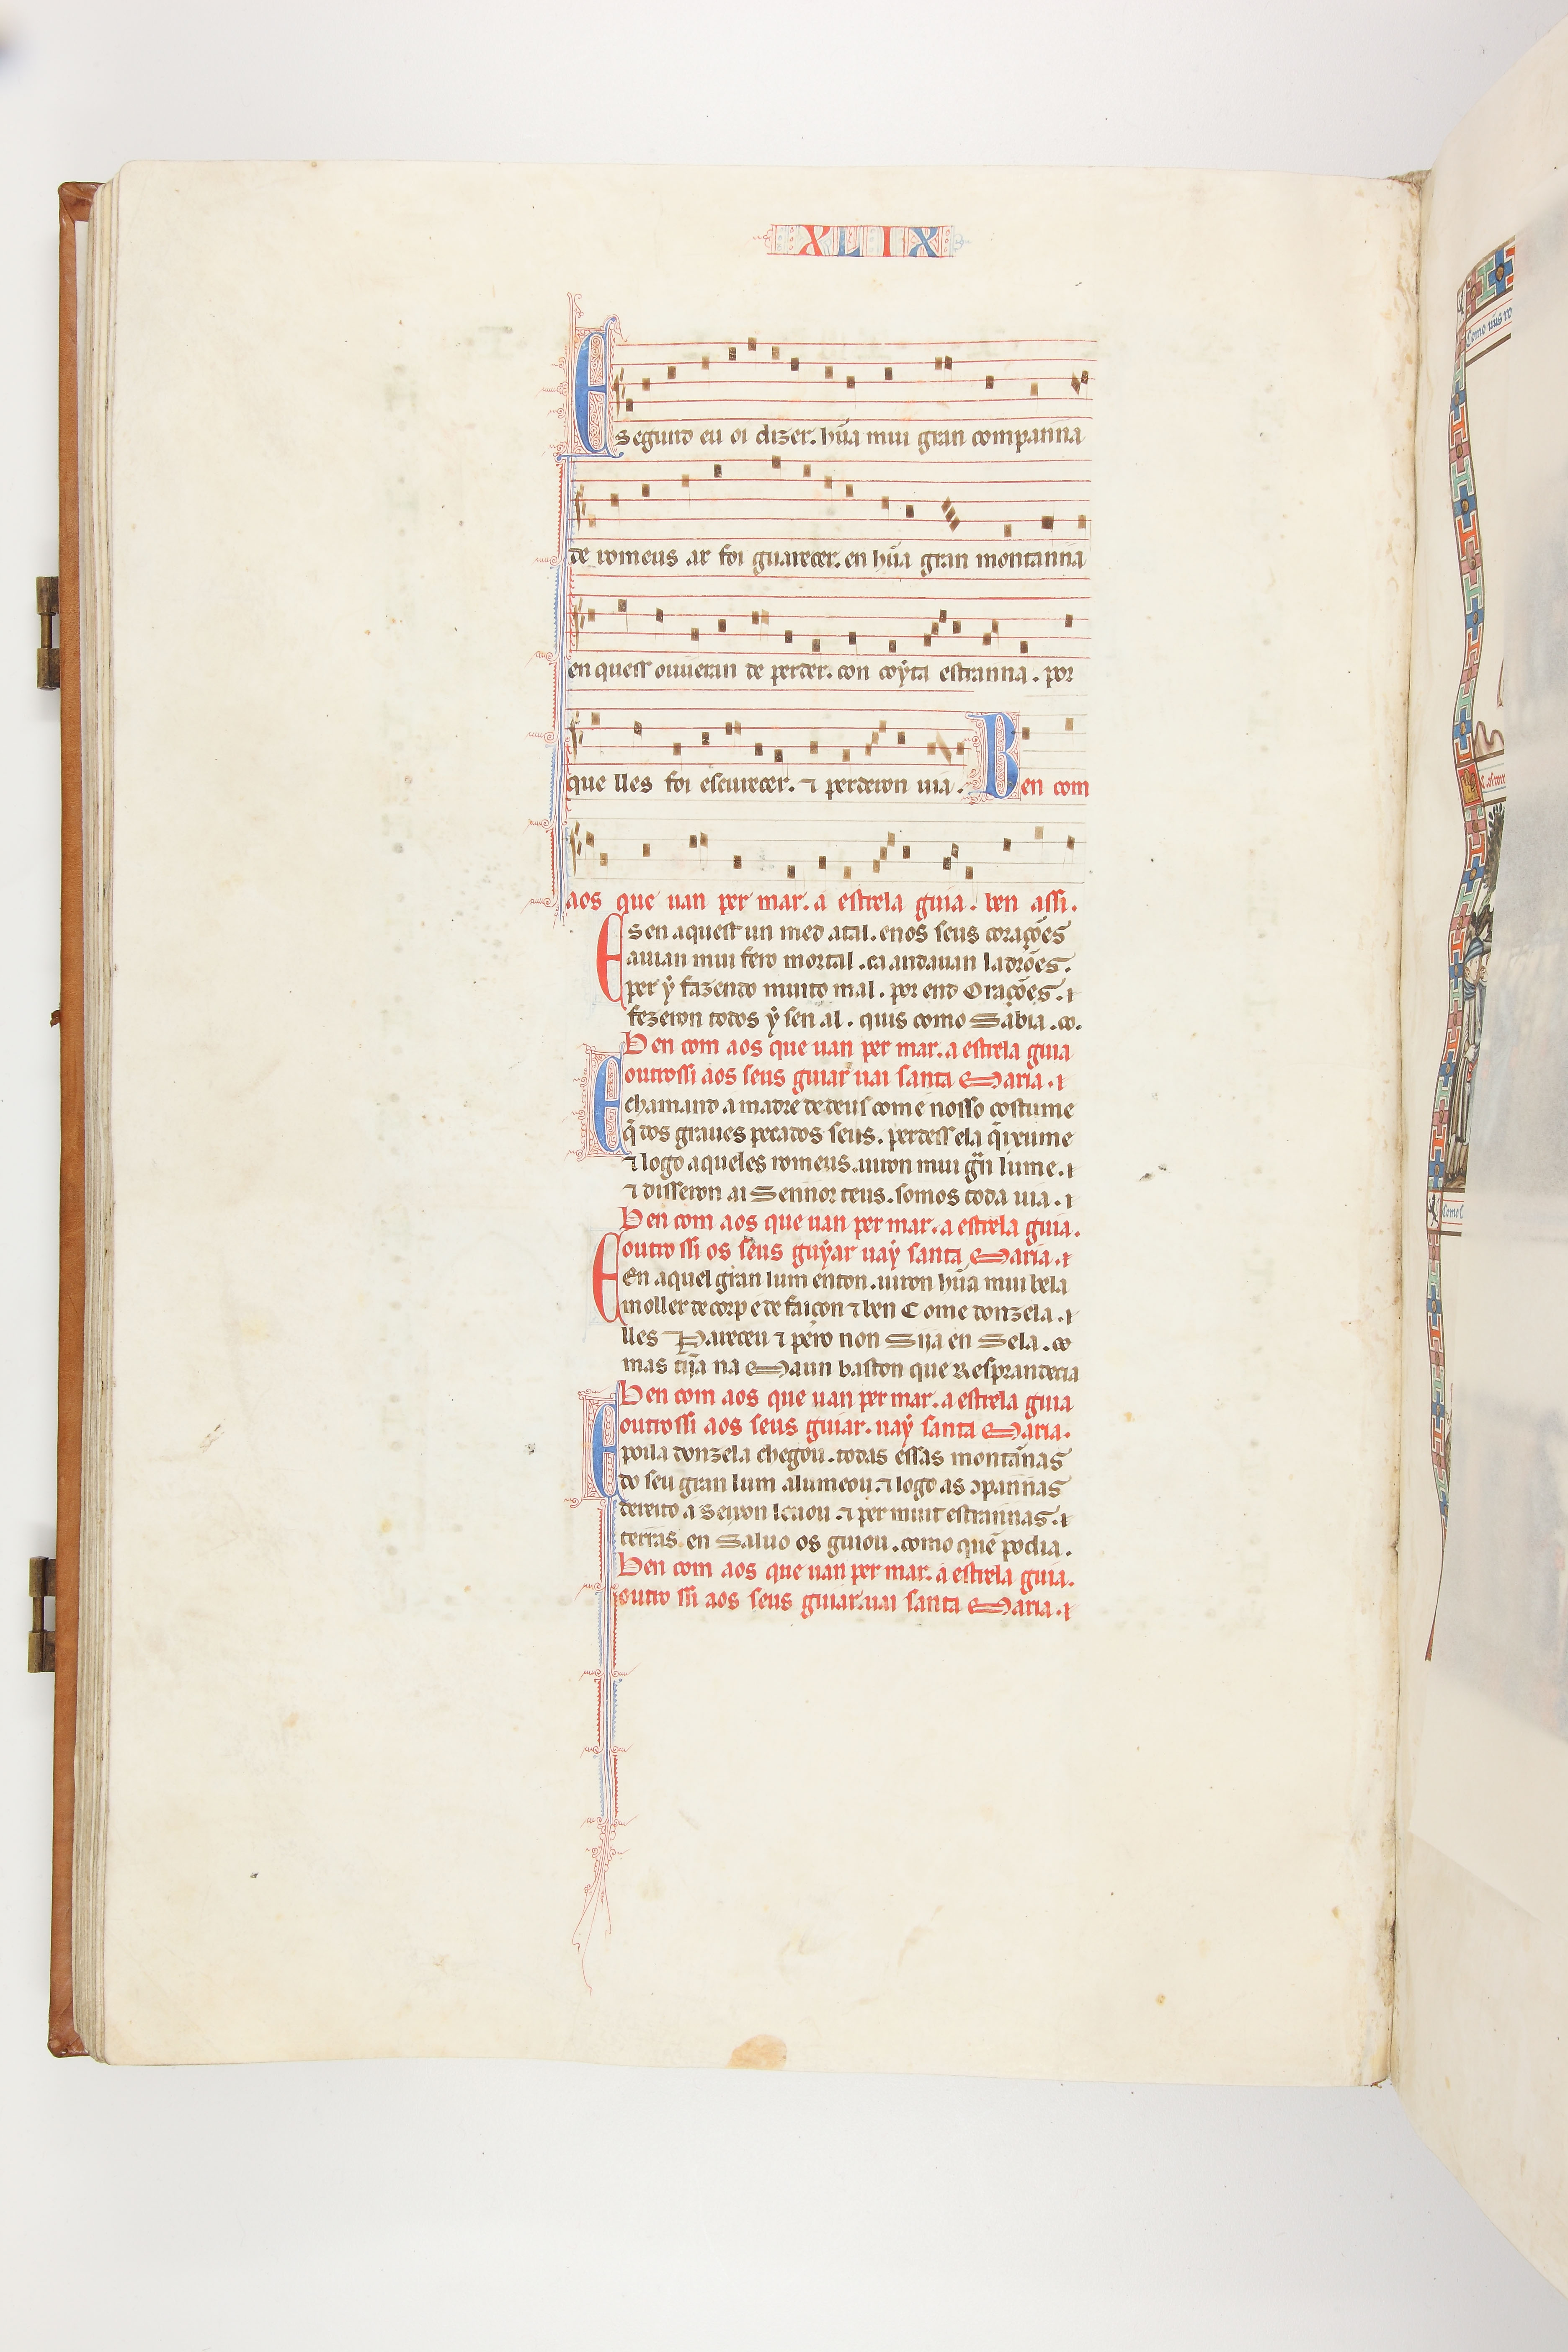 XLIX
E segund eu oi dizer. hũa mui gran companna
de romeus ar foi guarecer. en hũa gran montanna
en quess ouueran de perder. con coẏta estranna. por
que lles foi escurecer. ⁊ perderon uia. Ben com
aos que uan per mar. a estrela guia. ben assi.
E sen aquest un med atal. enos seus corações
auian mui fero mortal. ca andauan ladrões.
per ẏ fazendo muito mal. por end Orações. ⁊
fezeron todos ẏ sen al. quis como Sabia. co.
Ben com aos que uan per mar. a estrela guia
outrossi aos seus guiar uai santa Maria. ⁊
E chamand a madre de deus com e nosso costume
q̃ dos graues pecados seus. perdess ela q̃ixume
⁊ logo aqueles romeus. uiron mui gñ lume. ⁊
⁊ disseron ai Sennor teus. somos toda uia. ⁊
Ben com aos que uan per mar. a estrela guia.
outro ssi os seus guẏar uaẏ santa Maria. ⁊
E en aquel gran lum enton. uiron hũa mui bela
moller de corp e de faiçon ⁊ ben Come donzela. ⁊
lles Pareceu ⁊ pero non Sija en Sela. co
mas tĩja na Maun baston que Resprandecia
Ben com aos que uan per mar. a estrela guia
outrossi aos seus guiar. uaẏ santa Maria.
E poila donzela chegou. todas essas montãnas
do seu gran lum alumeou. ⁊ logo as ɔpannas
dereito a Seiron leuou. ⁊ per muit estrannas. ⁊
terras en Saluo os guiou. como quẽ podia.
Ben com aos que uan per mar. a estrela guia.
outro ssi aos seus guiar. uai santa Maria. ⁊